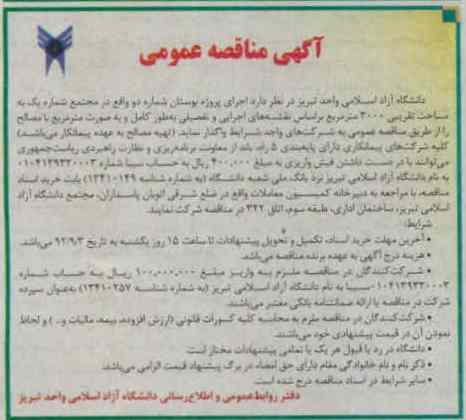 آگهی مناقصه عمومی
دانشگاه آزاد اسلامی واحد تبریز در نظر دارد اجرای پروژه بوستان شماره دو واقع در مجتمع شماره یک به
مساحت تقریبی ۳۰۰۰ مترمربع براساس نقشه‌های اجرایی و تفصیلی بطور کامل و به صورت مترمربع با مصالح
را از طریق مناقصه عمومی به شرکت‌های واجد شرایط واگذار نماید. (تهیه مصالح به عهده پیمانکار می‌باشد.)
کلیه شرکت‌های پیمانکاری دارای پایه‌بندی ۵ راه، باند از معاونت برنامه‌ریزی و نظارت راهبردی ریاست‌جمهوری
می‌توانند با در دست داشتن فیش واریزی به مبلغ ۴۰۰,۰۰۰ ریال به حساب سیبا شماره ۰۱۰۴۱۳۹۳۳۰۰۰۳
به نام دانشگاه آزاد اسلامی تبریز نزد بانک ملی شعبه دانشگاه (به شماره شناسه ۱۳۴۱۰۱۴۹) بابت خرید اسناد
مناقصه، با مراجعه به دبیرخانه کمیسیون معاملات واقع در ضلع شرقی اتوبان پاسداران، مجتمع دانشگاه آزاد
اسلامی تبریز، ساختمان اداری، طبقه سوم، اتاق ۳۲۲ در مناقصه شرکت نمایند.
شرایط:
• آخرین مهلت خرید اسناد، تکمیل و تحویل پیشنهادات تا ساعت ۱۵ روز یکشنبه به تاریخ ۹۲/۹/۳ می‌باشد.
• هزینه درج آگهی به عهده برنده مناقصه می‌باشد.
• شرکت‌کنندگان در مناقصه ملزم به واریز مبلغ ۱۰۰,۰۰۰,۰۰۰ ریال به حساب شماره
۰۱۰۴۱۳۹۳۳۰۰۰۳ سیبا به نام دانشگاه آزاد اسلامی تبریز (به شماره شناسه ۱۳۴۱۰۲۵۷) به‌عنوان سپرده
شرکت در مناقصه یا ارائه ضمانتنامه بانکی معتبر می‌باشند.
• شرکت‌کنندگان در مناقصه ملزم به محاسبه کلیه کسورات قانونی (ارزش افزوده، بیمه، مالیات و...) و لحاظ
نمودن آن در قیمت پیشنهادی خود می‌باشند.
• دانشگاه در رد یا قبول هر یک یا تمامی پیشنهادات مختار است.
• ذکر نام و نام خانوادگی مقام دارای حق امضاء در برگ پیشنهاد قیمت الزامی می‌باشد.
• سایر شرایط در اسناد مناقصه درج شده است.
دفتر روابط‌عمومی و اطلاع‌رسانی دانشگاه آزاد اسلامی واحد تبریز